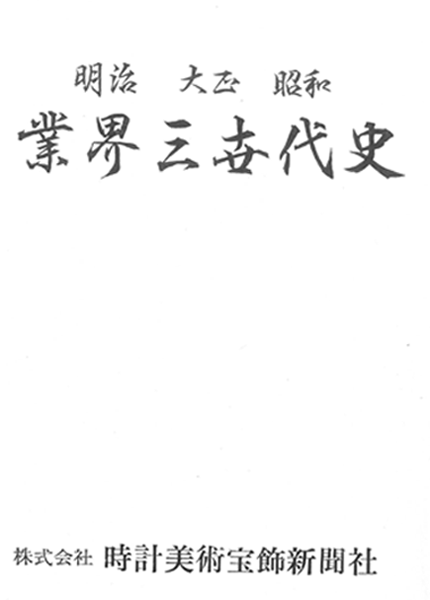 明治 大正 昭和
業界三世代史
株式会社 時計美術宝飾新聞社